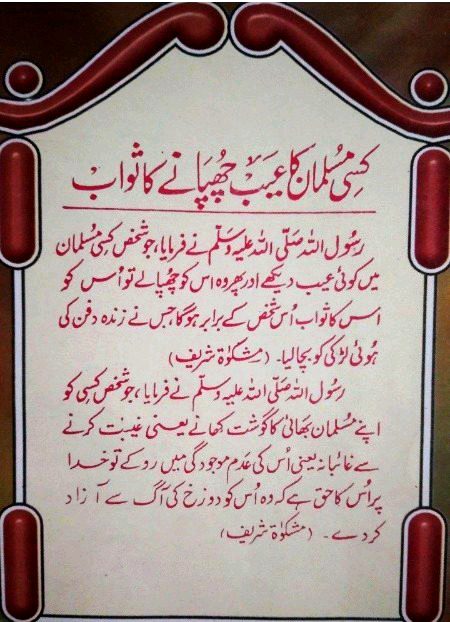 کسی مسلمان کا عیب چھپانے کا ثواب
رسول اللہ صلّی اللہ علیہ وسلّم نے فرمایا، جو شخص کسی مسلمان
میں کوئی عیب دیکھے اور پھر وہ اس کو چھپالے تو اُس کو
اس کا ثواب اُس شخص کے برابر ہوگا، جس نے زندہ دفن کی
ہوئی لڑکی کو بچالیا۔ (مشکوٰۃ شریف)
رسول اللہ صلّی اللہ علیہ وسلّم نے فرمایا، جو شخص کسی کو
اپنے مسلمان بھائی کا گوشت کھانے یعنی غیبت کرنے
سے غائبانہ یعنی اُس کی عدم موجودگی میں روکے تو خدا
پر اُس کا حق ہے کہ وہ اُس کو دوزخ کی آگ سے آزاد
کر دے۔ (مشکوٰۃ شریف)